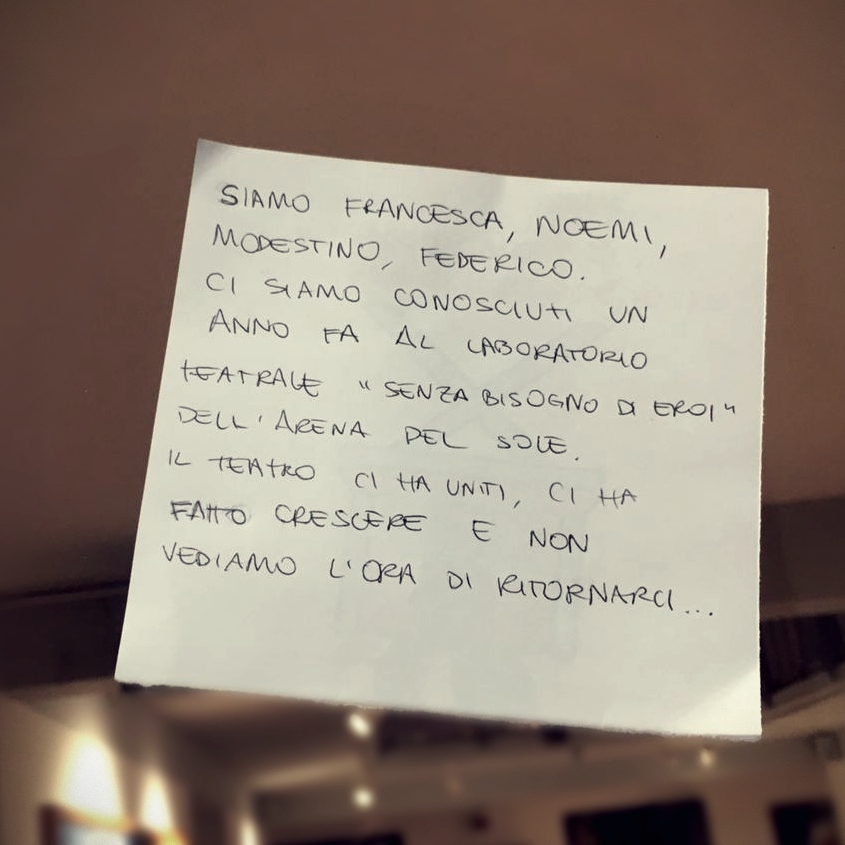 SIAMO FRANCESCA, NOEMI,
MODESTINO, FEDERICO.
CI SIAMO CONOSCIUTI UN
ANNO FA AL LABORATORIO
TEATRALE "SENZA BISOGNO DI EROI"
DELL'ARENA DEL SOLE.
IL TEATRO CI HA UNITI, CI HA
FATTO CRESCERE E NON
VEDIAMO L'ORA DI RITORNARCI...